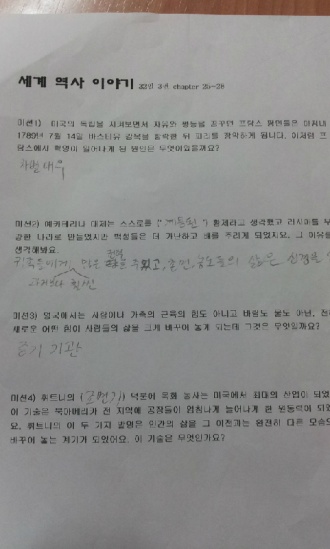 세계 역사 이야기 32일 3권 chapter 25~28
미션1) 미국의 독립을 지켜보면서 자유와 평등을 꿈꾸던 프랑스 평민들은 마침내
1789년 7월 14일 바스티유 감옥을 함락한 뒤 파리를 장악하게 됩니다. 이처럼 프
랑스에서 혁명이 일어나게 된 원인은 무엇이었을까요?
차별대우
미션2) 예카테리나 대제는 스스로를 ( ) 황제라고 생각했고 러시아를 부
강한 나라로 만들었지만 백성들은 더 가난하고 배를 주리게 되었지요. 그 이유를
생각해봐요.
귀족들에게 많은 을 주었고, 농민, 들의 삶은 신경을
미션3) 영국에서는 사람이나 가축의 근육의 힘도 아니고 바람도 물도 아닌, 전혀
새로운 어떤 힘이 사람들의 삶을 크게 바꾸어 놓게 되는데 그것은 무엇일까요?
증기 기관
미션4) 휘트니의 (조면기) 덕분에 목화 농사는 미국에서 최대의 산업이 되었
이 기술은 북아메리카 전 지역에 공장들이 엄청나게 늘어나게 한 원동력이 되었
요. 휘트니의 이 두 가지 발명은 인간의 삶을 그 이전과는 완전히 다른 모습으
바꾸어 놓는 계기가 되었어요. 이 기술은 무엇인가요?